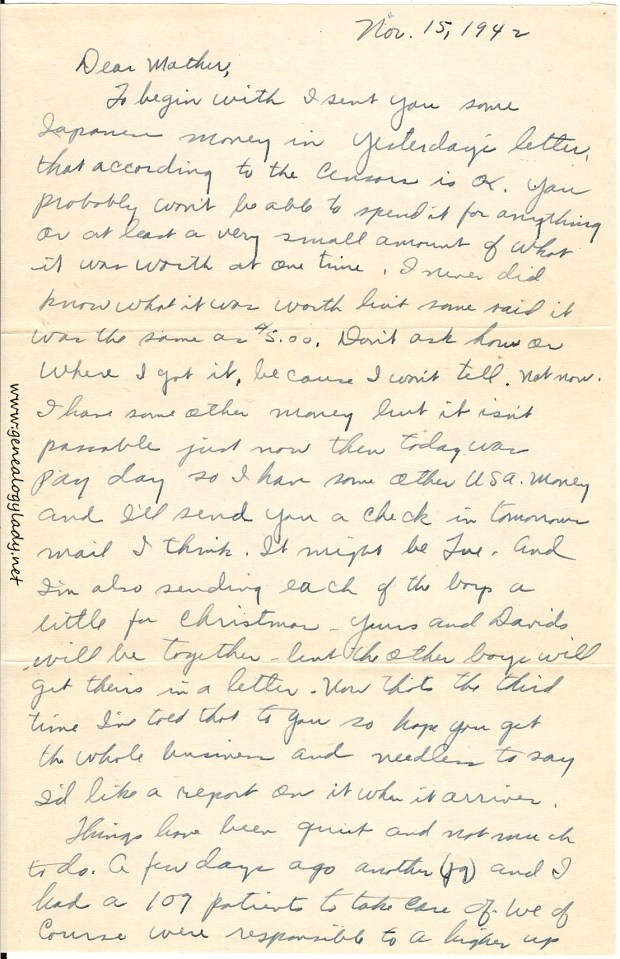 Nov. 15, 1942
Dear Mother,
To begin with I sent you some
Japanese money in yesterday's letter,
that according to the censors is OK. You
probably won't be able to spend it for anything
or at least a very small amount of what
it was worth at one time. I never did
know what it was worth but some said it
was the same as $5.00. Don't ask how or
where I got it, because I won't tell. Not now.
I have some other money but it isn't
passable just now then today was
pay day so I have some other USA. money
and I'll send you a check in tomorrows
mail I think. It might be Tue. And
I'm also sending each of the boys a
little for Christmas - yours and Davids
will be together - but the other boys will
get theirs in a letter. Now thats the third
time I've told that to you so hope you get
the whole business and needless to say
I'd like a report on it when it arrives.
Things have been quiet and not much
to do. A few days ago another (jg) and I
had a 109 patients to take care of. We of
course were responsible to a higher up
www.genealogylady.net